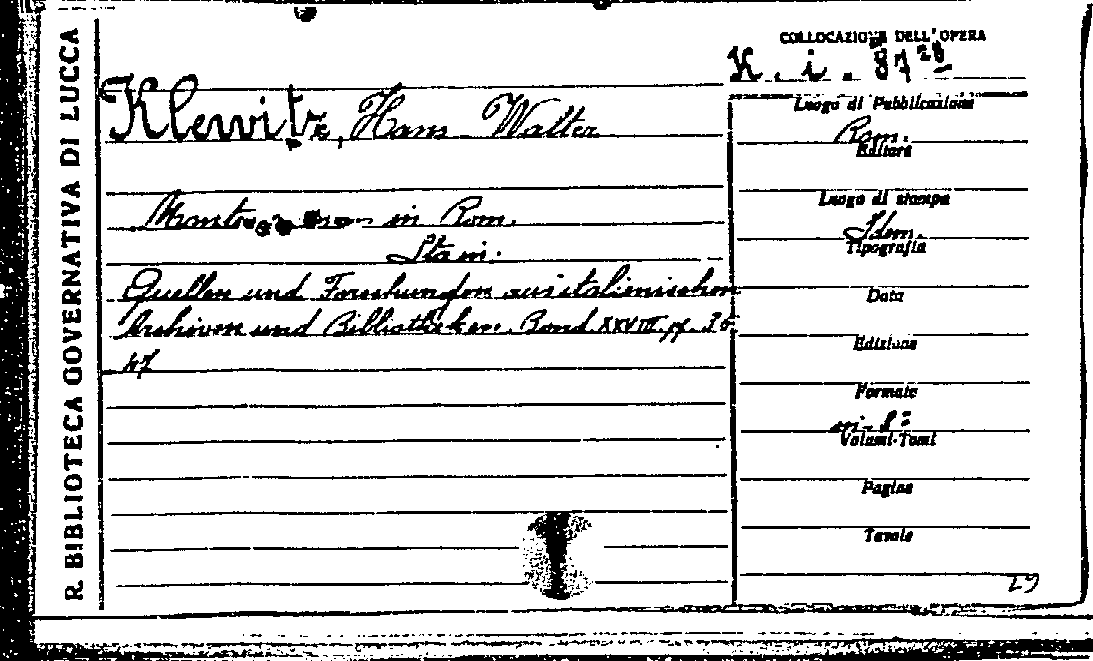 R. BIBLIOTECA GOVERNATIVA DI LUCCA
COLLOCAZIONE DELL'OPERA
K. i. 87
Klewitz, Hans Walter
in Rom.
Quellen und Forschungen aus italienischen
Archiven und Bibliotheken. Band XXVIII. pp. 36
47
Luogo di Pubblicazione
Rom.
Editore
Luogo di stampa
Idem.
Tipografia
Data
Edizione
Formato
in-8°
Volumi-Tomi
Pagine
Tavole
29